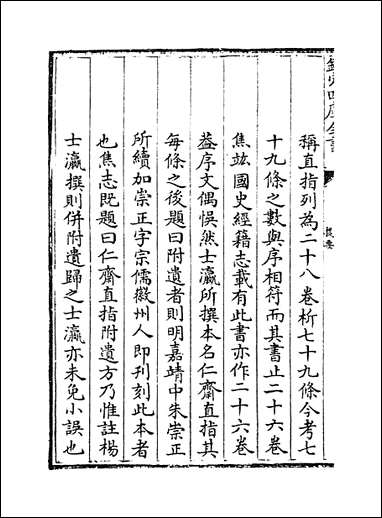 欽定四庫全書
提要
稱直指列為二十八卷析七十九條今考七
十九條之數與序相符而其書止二十六卷
焦竑國史經籍志載有此書亦作二十六卷
葢序文偶悞然士瀛所撰本名仁齋直指其
每條之後題曰附遺者則明嘉靖中朱崇正
所續加崇正字宗儒徽州人即刊刻此本者
也焦志既題曰仁齋直指附遺方乃惟註楊
士瀛撰則併附遺歸之士瀛亦未免小誤也